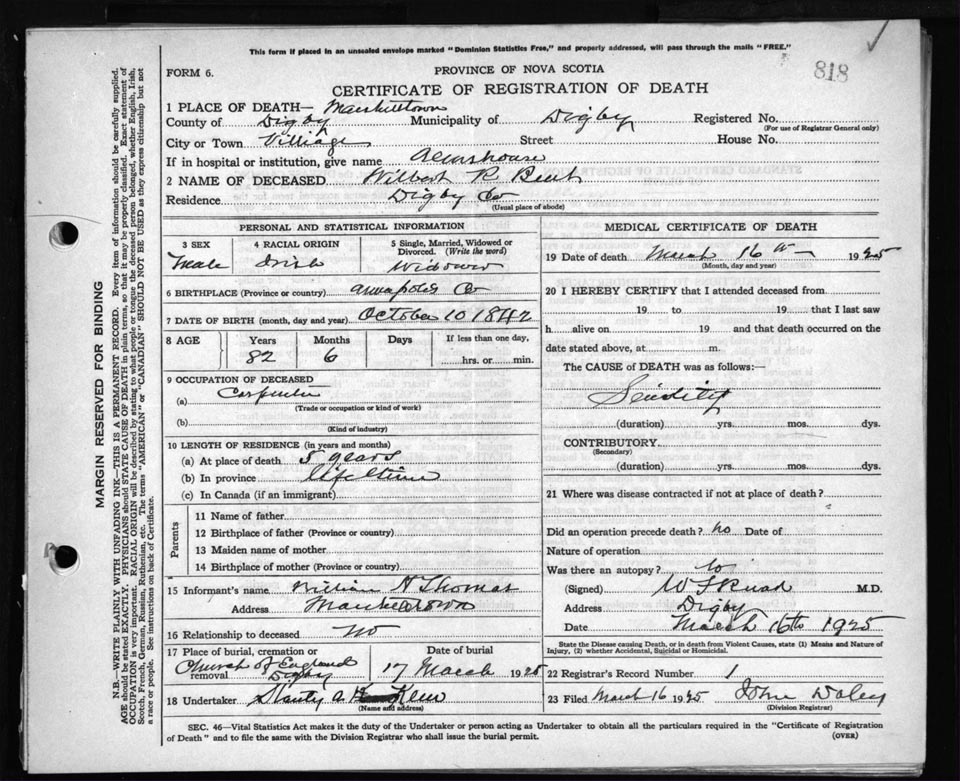 This form if placed in an unsealed envelope marked "Dominion Statistics Free," and properly addressed, will pass through the mails "FREE."
818
FORM 6.
PROVINCE OF NOVA SCOTIA
CERTIFICATE OF REGISTRATION OF DEATH
1 PLACE OF DEATH— Marshalltown
County of Digby Municipality of Digby Registered No.
(For use of Registrar General only)
City or Town Villiage Street House No.
If in hospital or institution, give name Almshouse
2 NAME OF DECEASED Wilbert R Bent
Residence Digby Co
(Usual place of abode)
PERSONAL AND STATISTICAL INFORMATION
3 SEX 4 RACIAL ORIGIN 5 Single, Married, Widowed or Divorced. (Write the word)
Male Irish Widower
6 BIRTHPLACE (Province or country) Annapolis Co
7 DATE OF BIRTH (month, day and year) October 10 1842
8 AGE Years Months Days If less than one day,
82 6 hrs. or min.
9 OCCUPATION OF DECEASED
(a) Carpenter
(Trade or occupation or kind of work)
(b)
(Kind of industry)
10 LENGTH OF RESIDENCE (in years and months)
(a) At place of death 5 years
(b) In province life time
(c) In Canada (if an immigrant)
Parents
11 Name of father
12 Birthplace of father (Province or country)
13 Maiden name of mother
14 Birthplace of mother (Province or country)
15 Informant's name William H Thomas
Address
16 Relationship to deceased No
17 Place of burial, cremation or removal Date of burial
Church of England Digby 17 March 1925
18 Undertaker
(Name and address)
MEDICAL CERTIFICATE OF DEATH
19 Date of death March 16 1925
(Month, day and year)
20 I HEREBY CERTIFY that I attended deceased from
19 to 19 that I last saw
h alive on 19 and that death occurred on the
date stated above, at m.
The CAUSE of DEATH was as follows:—
Senility
(duration) yrs. mos. dys.
CONTRIBUTORY
(Secondary)
(duration) yrs. mos. dys.
21 Where was disease contracted if not at place of death?
Did an operation precede death? No Date of
Nature of operation
Was there an autopsy?
(Signed) M.D.
Address Digby
Date March 16th 1925
State the Disease causing Death, or in death from Violent Causes, state (1) Means and Nature of Injury, (2) whether Accidental, Suicidal or Homicidal.
22 Registrar's Record Number 1
23 Filed March 16 1925 John Daley
(Division Registrar)
SEC. 46—Vital Statistics Act makes it the duty of the Undertaker or person acting as Undertaker to obtain all the particulars required in the "Certificate of Registration
of Death" and to file the same with the Division Registrar who shall issue the burial permit. (OVER)
MARGIN RESERVED FOR BINDING
N.B.—WRITE PLAINLY WITH UNFADING INK—THIS IS A PERMANENT RECORD. Every item of information should be carefully supplied.
AGE should be stated EXACTLY. PHYSICIANS should STATE CAUSE OF DEATH in plain terms, so that it may be properly classified. Exact statement of
OCCUPATION is very important. RACIAL ORIGIN will be described by stating to what people or tongue the deceased person belonged, whether English, Irish,
Scotch, French, German, Russian, Ruthenian, etc. The terms "AMERICAN" or "CANADIAN" SHOULD NOT BE USED as they express citizenship but not
a race or people. See instructions on back of Certificate.